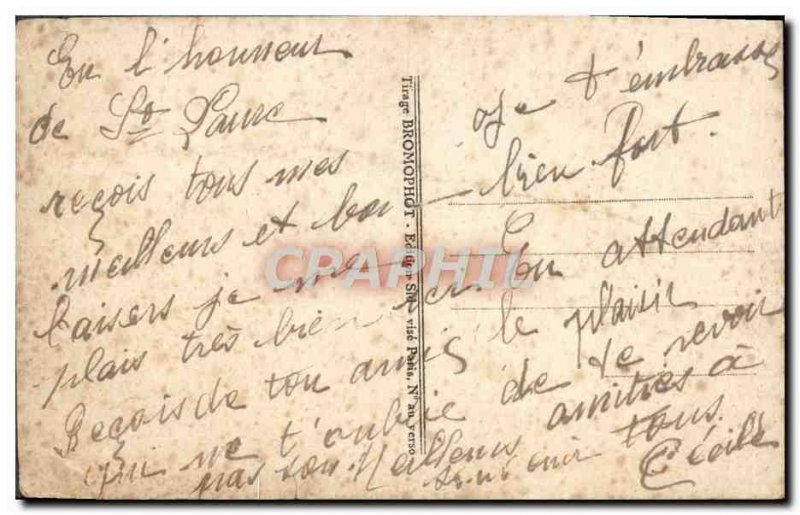 En l'honneur
de Ste Laure
reçois tous mes
meilleurs et bons
baisers je me
plais très bien ici
Reçois de ton amie
qui ne t'oublie
pas
Je t'embrasse
bien fort.
En attendant
le plaisir
de te revoir
Meilleurs amitiés à
tous
Cécile
Tirage BROMOPHOT - Editeur Sté, visé Paris, N° au verso
CPAPHIL